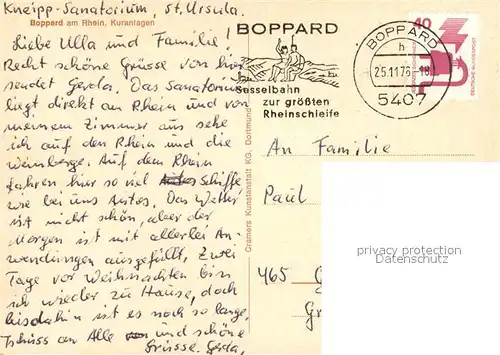 Kneipp-Sanatorium, St. Ursula.
Boppard am Rhein, Kuranlagen
Liebe Ulla und Familie!
Recht schöne Grüsse von hier
sendet Gerda. Das Sanatorium
liegt direkt am Rhein und von
meinem Zimmer aus sehe
ich auf den Rhein und die
Weinberge. Auf dem Rhein
fahren hier so viel Autos Schiffe
wie bei uns Autos. Das Wetter
ist nicht schön, aber der
Morgen ist mit allerlei An-
wendungen ausgefüllt. Zwei
Tage vor Weihnachten bin
ich wieder zu Hause, doch
bis dahin ist es noch so lange.
Tschüss an Alle und schöne
Grüsse. Gerda,
Cramers Kunstanstalt KG, Dortmund
BOPPARD
Sesselbahn
zur größten
Rheinschleife
BOPPARD
h
25.11.76-18
5407
40
An Familie
Paul
465
privacy protection
Datenschutz